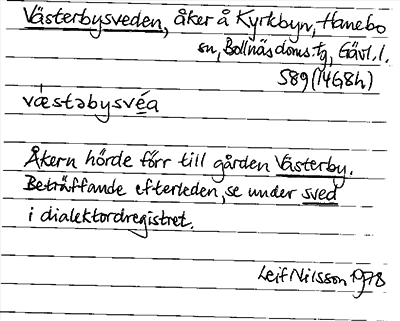 Västerbysveden, åker å Kyrkbyn, Hanebo
sn, Bollnäs doms. tg, Gävl. l.
S89 (14G8h)
væ̀stəbysvéa
Åkern hörde förr till gården Västerby.
Beträffande efterleden, se under sved
i dialektordregistret.
Leif Nilsson 1978